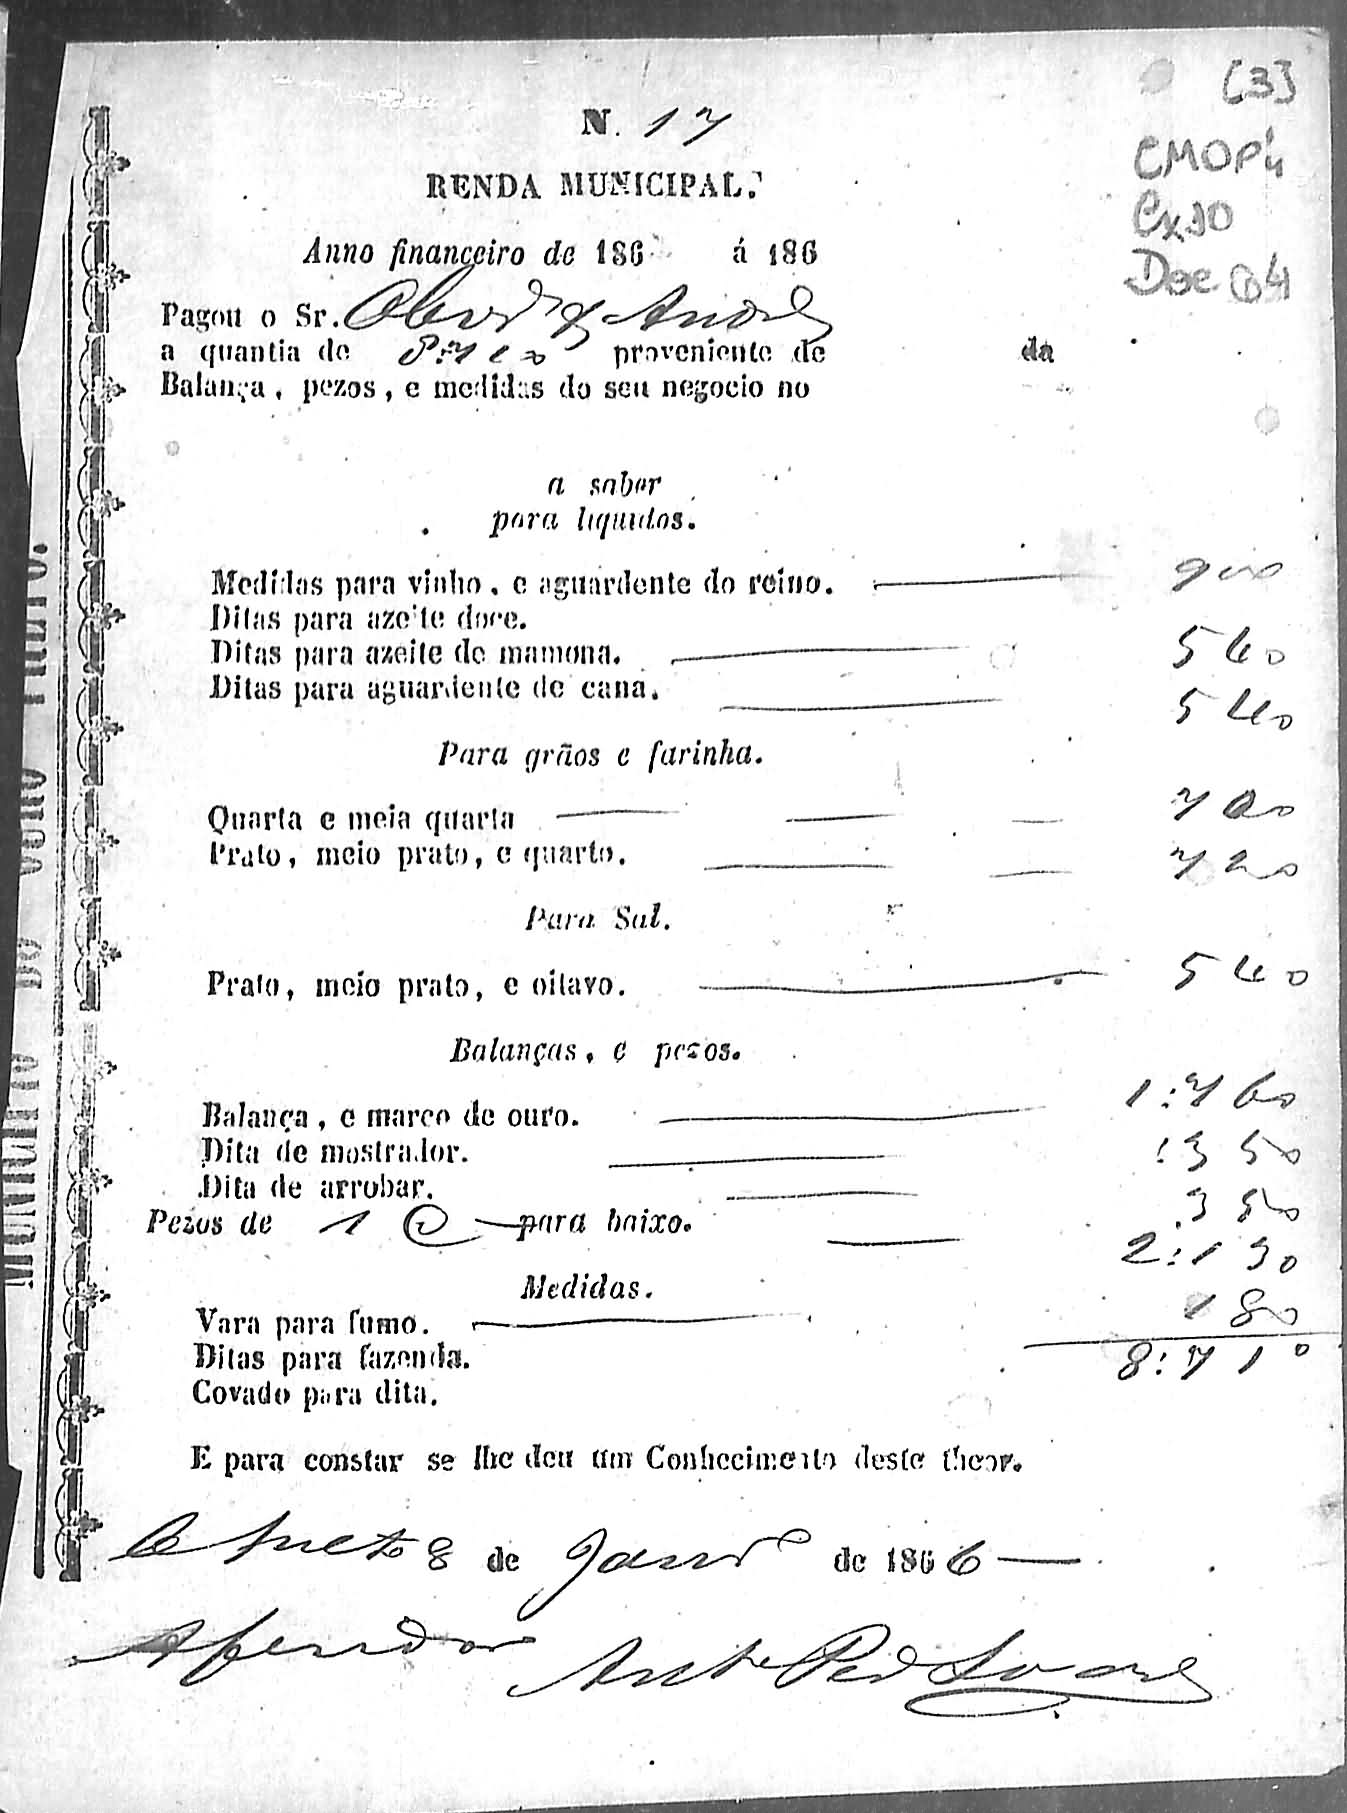 [3]
CMOP
Cx 10
Doc 64
N. 17
RENDA MUNICIPAL.
Anno financeiro de 186 á 186
Pagou o Sr. & Andre
a quantia de 8:710 proveniente de da
Balança, pezos, e medidas do seu negocio no
a saber
para liquidos.
Medidas para vinho, e aguardente do reino. 900
Ditas para azeite doce.
Ditas para azeite de mamona. 540
Ditas para aguardente de cana. 540
Para grãos e farinha.
Quarta e meia quarta 720
Prato, meio prato, e quarto. 720
Para Sal.
Prato, meio prato, e oitavo. 540
Balanças, e pezos.
Balança, e marco de ouro. 1:760
Dita de mostrador. 350
Dita de arrobar. 350
Pezos de 1 @ para baixo. 2:130
Medidas.
Vara para fumo. 180
Ditas para fazenda. 8:710
Covado para dita.
E para constar se lhe deu um Conhecimento deste theor.
8 de Janrº de 1866
Aferidor Antº Ped Soares
MUNICIPIO DO OURO PRETO.